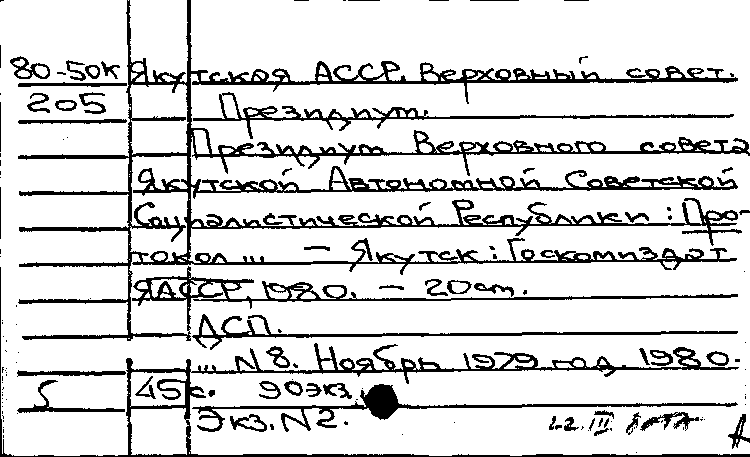 80-50к Якутская АССР. Верховный совет.
205 Президиум.
Президиум Верховного совета
Якутской Автономной Советской
Социалистической Республики : Про-
токол ... — Якутск : Госкомиздат
ЯАССР, 1980. — 20 см.
ДСП.
... N 8. Ноябрь 1979 год. 1980.
5 45 с. 90 экз.
Экз. N 2.
22. III